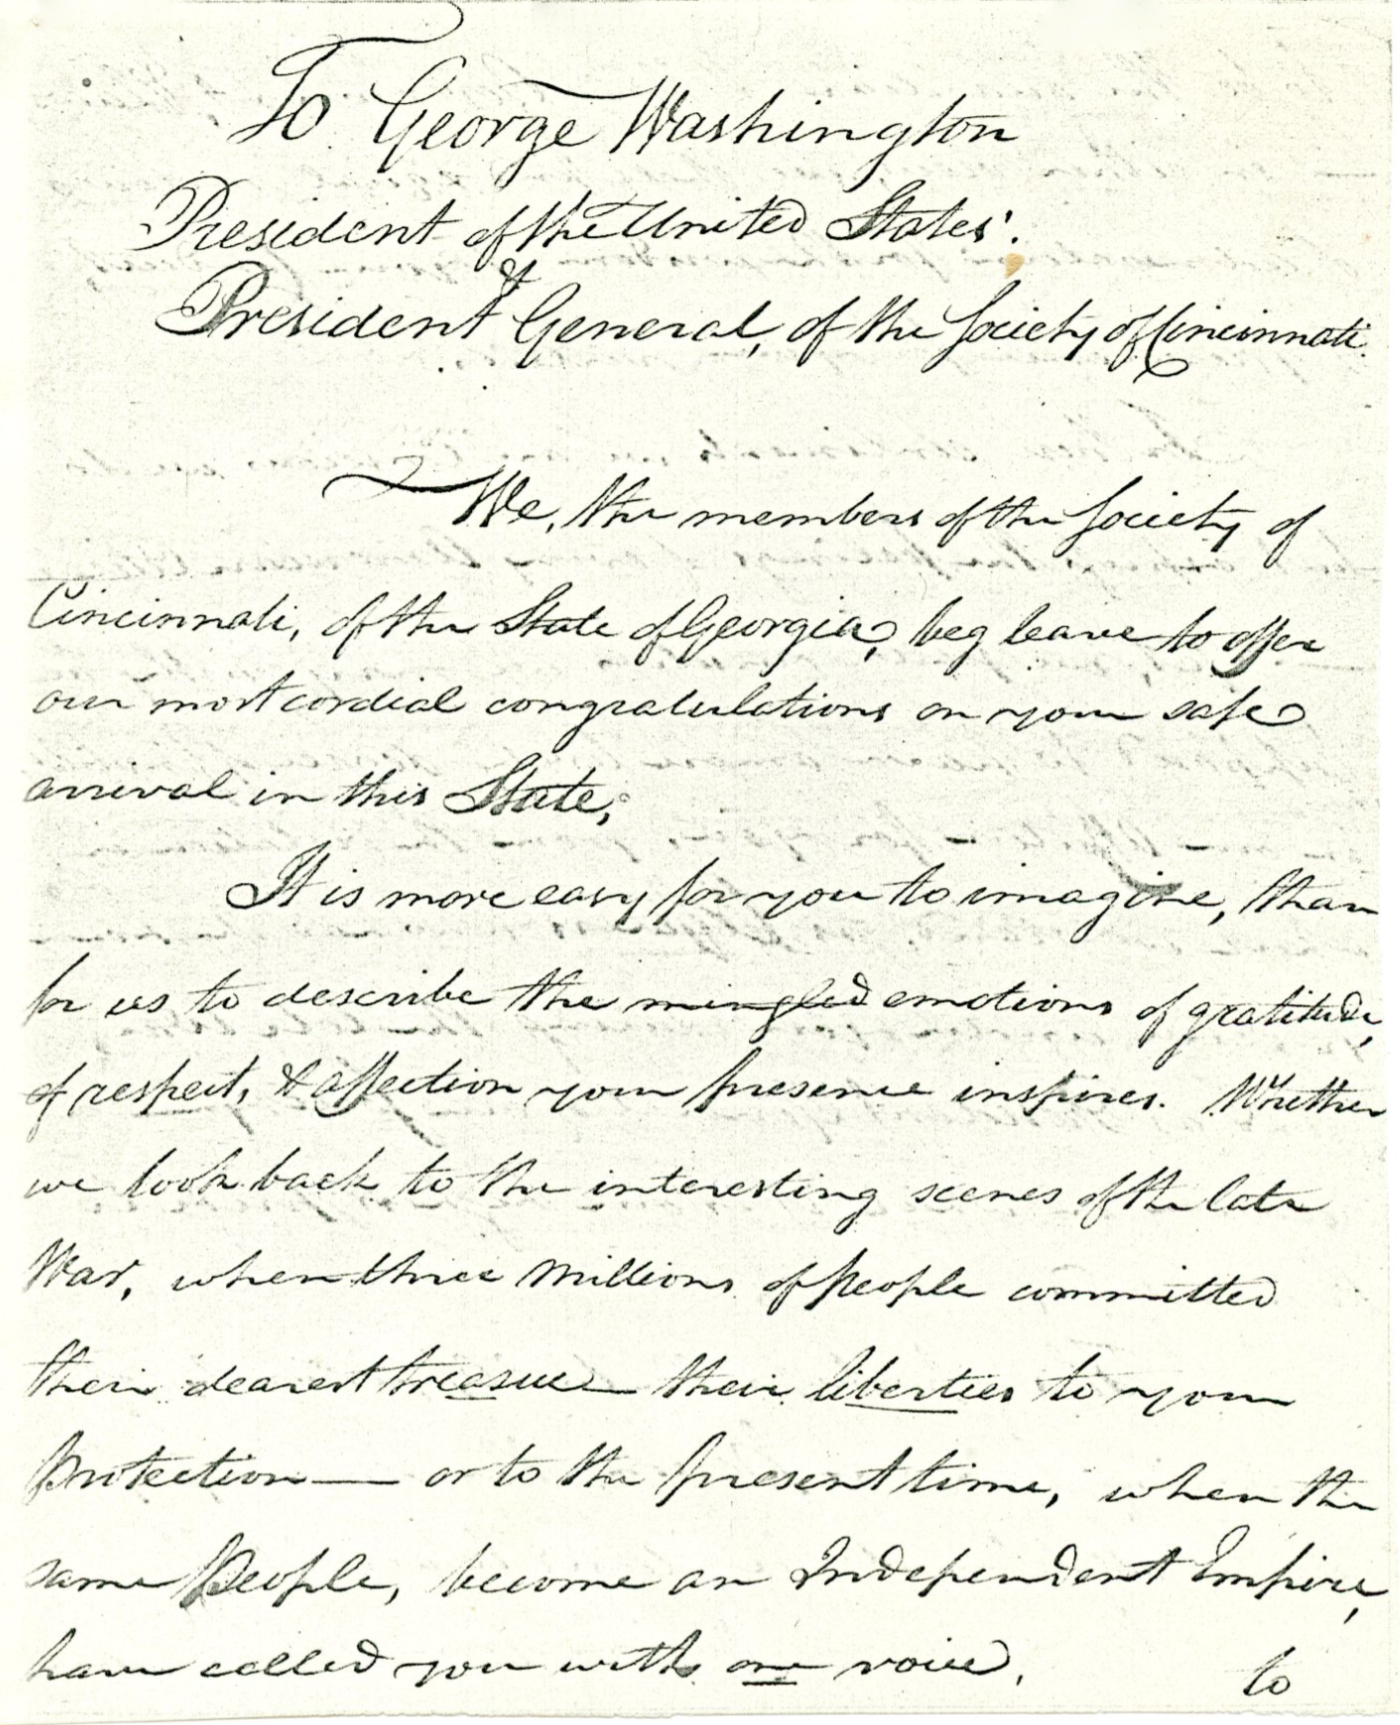 To George Washington
President of the United States.
&
President General, of the Society of Cincinnati.
We, the members of the Society of
Cincinnati, of the State of Georgia, beg leave to offer
our most cordial congratulations on your safe
arrival in this State,
It is more easy for you to imagine, than
for us to describe the mingled emotions of gratitude,
of respect, & affection your presence inspires. Whether
we look back to the interesting scenes of the late
War, when three Millions of people committed
their dearest treasure their liberties to your
protection — or to the present time, when the
same People, become an Independent Empire,
have called you with one voice,
to